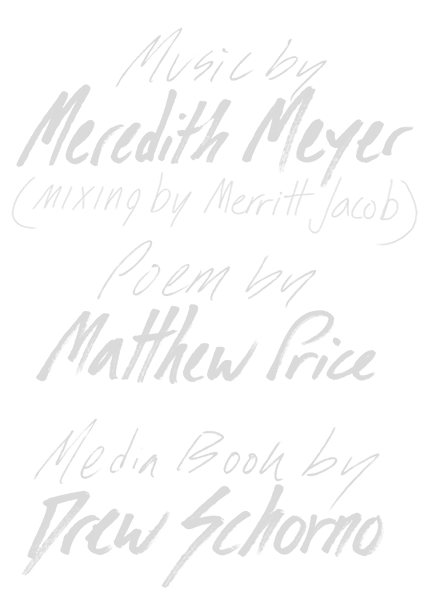 Music by
Meredith Meyer
(Mixing by Merritt Jacob)
Poem by
Matthew Price
Media Book by
Drew Schorno